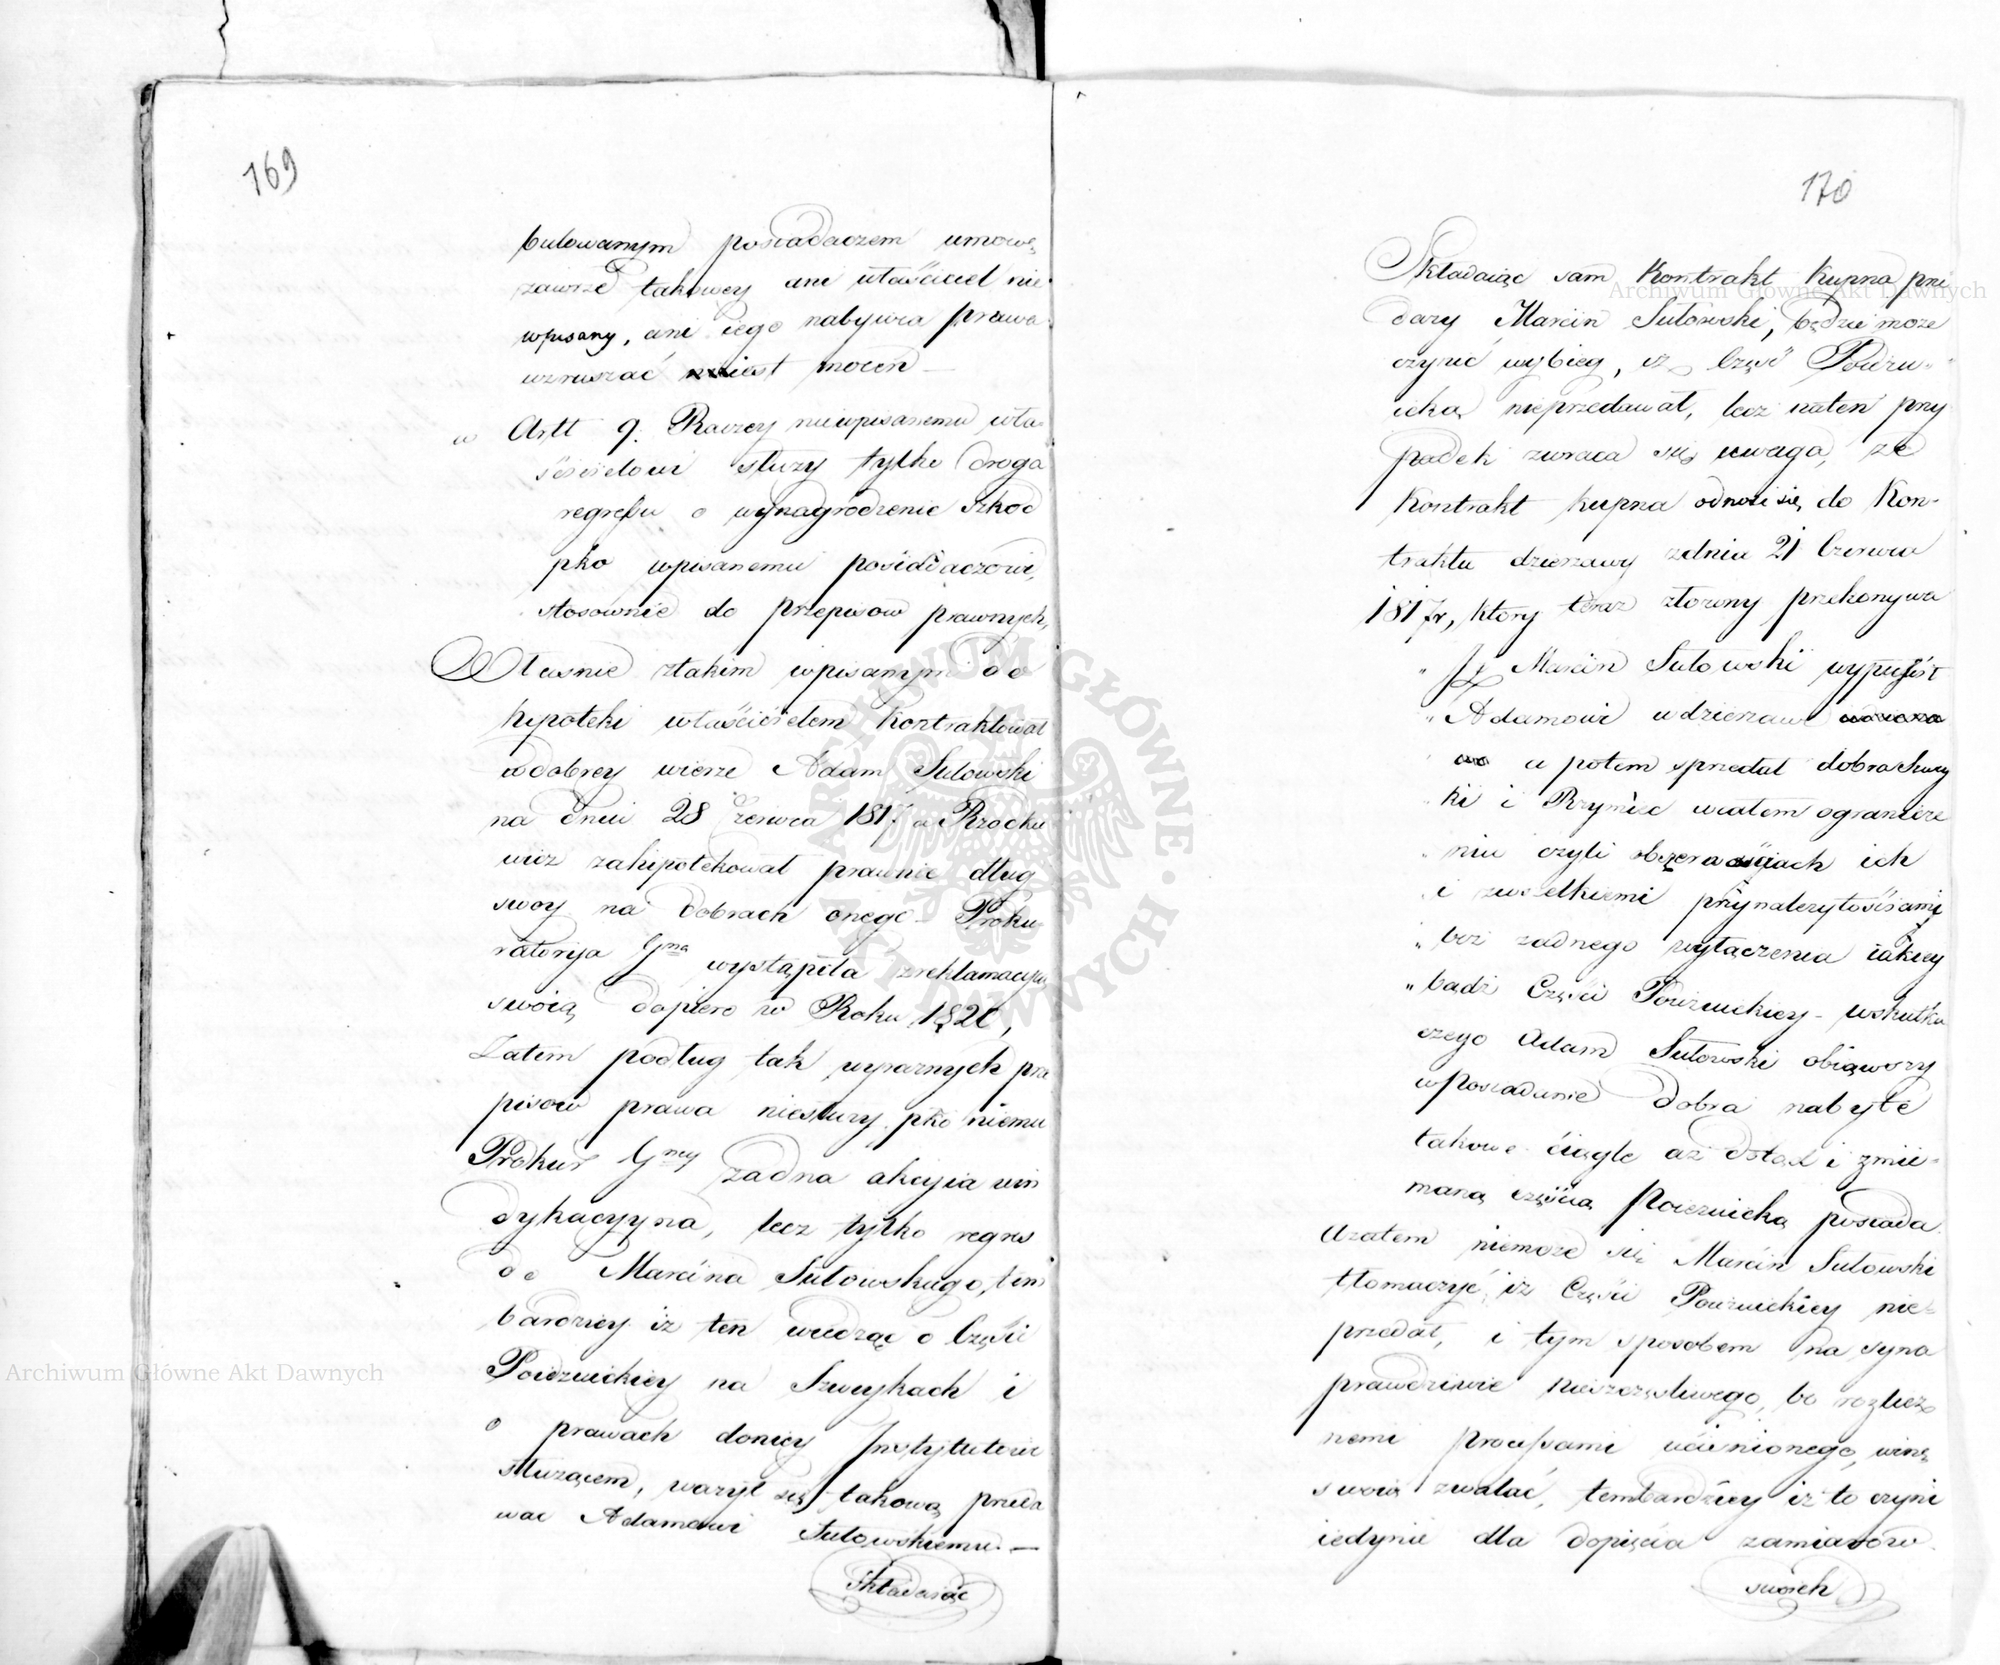 169
bulowanym posiadaczem umowę
zawrze takowey ani właściciel nie
wpisany, ani iego nabywca prawa
wzruszać iest mocen —
Artt 9. Raczey niewpisanemu wła-
ścicielowi służy tylko droga
regressu o wynagrodzenie szkod
pko wpisanemu posiadaczowi,
stosownie do przepisow prawnych,
Własnie ztakim wpisanym do
hipoteki właścicielem kontraktował
wdobrey wierze Adam Sulowski
na dniu 28 Czerwca 1817 a Rzocku
wicz zahipotekował prawnie dług
swoy na dobrach onego – Proku
ratorija Gna wystąpiła zreklamacyą
swoią dopiero w Roku 1820,
Zatem podług tak wyraznych prze
pisow prawa niesłuzy pko niemu
Prokur Gney zadna akcyia win
dykacyyna, lecz tylko regres
do Marcina Sulowskiego, tem
bardziey iz ten wiedząc o Częsci
Powizwickiey na Szwykach i
o prawach doniey Instytutowi
służącem, wazył się takową przeda
wac Adamowi Sulowskiemu. —
Składaiąc
170
Składaiąc sam Kontrakt Kupna przē
dazy Marcin Sulowski, będzie moze
czynić wybieg, iż Część
nieprzedawał, lecz naten przy
padek zwraca się uwaga, ze
Kontrakt kupna odnosi się do Kon-
traktu dzierzawy zdnia 21 Czerwca
1817r, ktory teraz złozony przekonywa
„ Iż Marcin Sulowski wypuścił
„ Adamowi wdzierzawe
a potem sprzedał dobra Szwy
ki i Rzymiec wcałem ogranicze
niu czyli obszernościach ich
i zwszelkiemi przynalezytościami
„ bez zadnego wyłączenia iakiey
„ bądź Części Powizwickiey – wskutku
czego Adam Sulowski obiąwszy
wposiadanie dobra nabyte
takowe ciągle aż dotąd i zmie-
maną częścią posiada.
Azatem niemoze się Marcin Sulowski
tłomaczyć, iz Części Powizwickiey nie-
przedał, i tym sposobem na syna
prawdziwie nieszczęsliwego, bo rozlicz-
nemi processami uciśnionego, winę
swoią zwalać, tembardziey iż to czyni
iedynie dla dopięcia zamiarow
swoich
Archiwum Główne Akt Dawnych
Archiwum Główne Akt Dawnych
ARCHIWUM GŁÓWNE AKT DAWNYCH